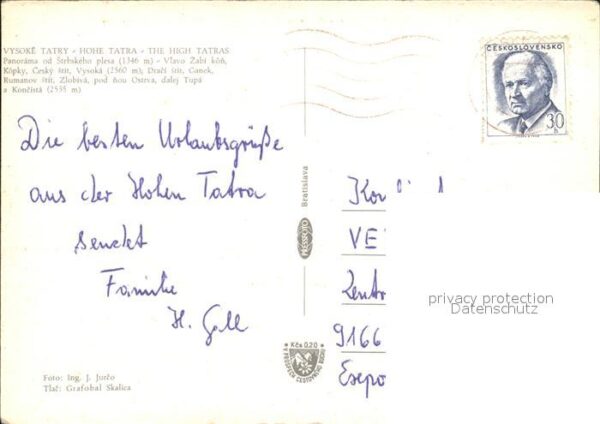 VYSOKÉ TATRY - HOHE TATRA - THE HIGH TATRAS
Panoráma od Štrbského plesa (1346 m) - Vľavo Žabí kôň,
Kôpky, Český štít, Vysoká (2560 m); Dračí štít, Ganek,
Rumanov štít, Zlobivá, pod ňou Ostrva, ďalej Tupá
a Končistá (2535 m)
Die besten Urlaubsgrüße
aus der Hohen Tatra
sendet
Familie
H. Gall
Foto: Ing. J. Jurčo
Tlač: Grafobal Skalica
Bratislava
PRESSFOTO
Kčs 0,20
V PROSPECH CESTOVNÉHO RUCHU
ČESKOSLOVENSKO
30
h
VE
Zentr
9166
privacy protection
Datenschutz